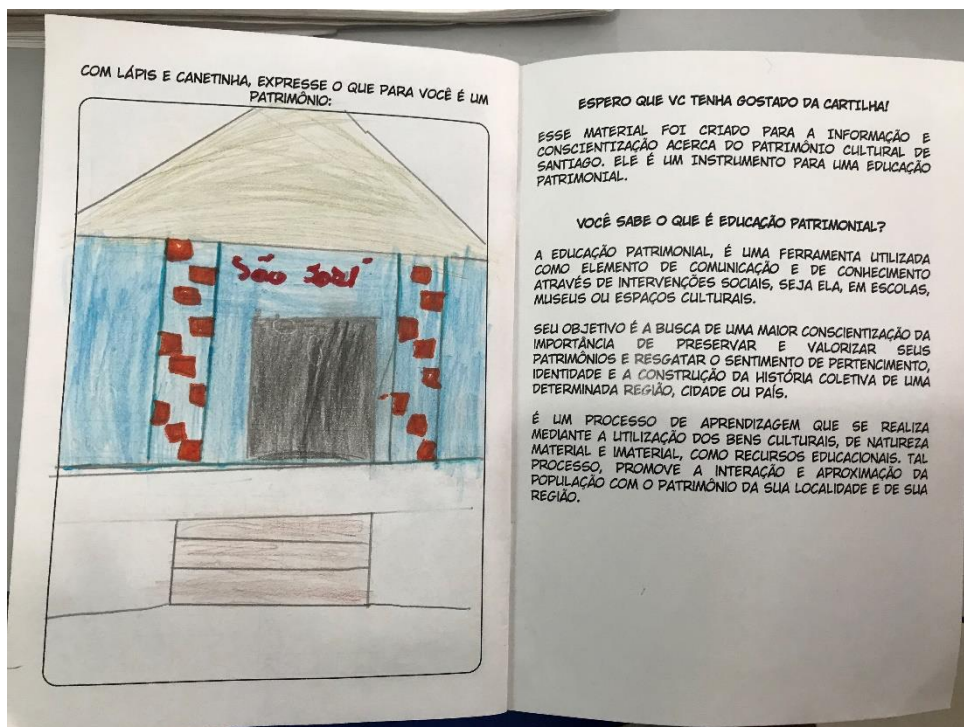 COM LÁPIS E CANETINHA, EXPRESSE O QUE PARA VOCÊ É UM
PATRIMÔNIO:
São José
ESPERO QUE VC TENHA GOSTADO DA CARTILHA!
ESSE MATERIAL FOI CRIADO PARA A INFORMAÇÃO E
CONSCIENTIZAÇÃO ACERCA DO PATRIMÔNIO CULTURAL DE
SANTIAGO. ELE É UM INSTRUMENTO PARA UMA EDUCAÇÃO
PATRIMONIAL.
VOCÊ SABE O QUE É EDUCAÇÃO PATRIMONIAL?
A EDUCAÇÃO PATRIMONIAL, É UMA FERRAMENTA UTILIZADA
COMO ELEMENTO DE COMUNICAÇÃO E DE CONHECIMENTO
ATRAVÉS DE INTERVENÇÕES SOCIAIS, SEJA ELA, EM ESCOLAS,
MUSEUS OU ESPAÇOS CULTURAIS.
SEU OBJETIVO É A BUSCA DE UMA MAIOR CONSCIENTIZAÇÃO DA
IMPORTÂNCIA DE PRESERVAR E VALORIZAR SEUS
PATRIMÔNIOS E RESGATAR O SENTIMENTO DE PERTENCIMENTO,
IDENTIDADE E A CONSTRUÇÃO DA HISTÓRIA COLETIVA DE UMA
DETERMINADA REGIÃO, CIDADE OU PAÍS.
É UM PROCESSO DE APRENDIZAGEM QUE SE REALIZA
MEDIANTE A UTILIZAÇÃO DOS BENS CULTURAIS, DE NATUREZA
MATERIAL E IMATERIAL, COMO RECURSOS EDUCACIONAIS. TAL
PROCESSO, PROMOVE A INTERAÇÃO E APROXIMAÇÃO DA
POPULAÇÃO COM O PATRIMÔNIO DA SUA LOCALIDADE E DE SUA
REGIÃO.